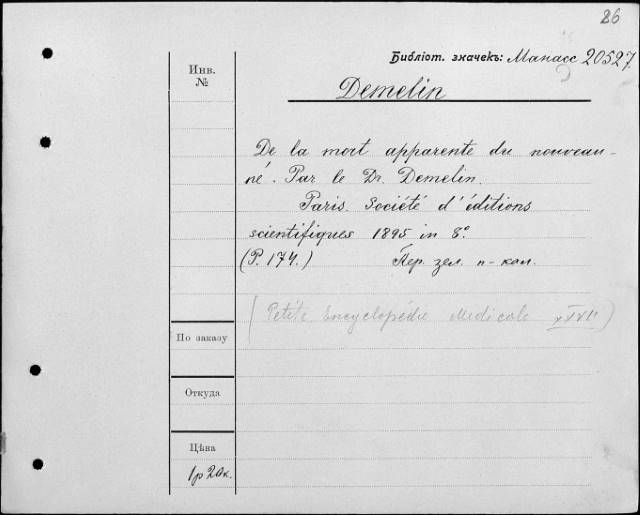 26
Библіот. значекъ: Манасс 20527.
Инв.
№
Demelin
De la mort apparente du nouveau-
né. Par le Dr. Demelin.
Paris. Société d'éditions
scientifiques 1895 in 8º
(P. 174.) Пер. зел. п-кол.
(Petite Encyclopédie Medicale XXVII)
По заказу
Откуда
Цѣна
1р 20к.